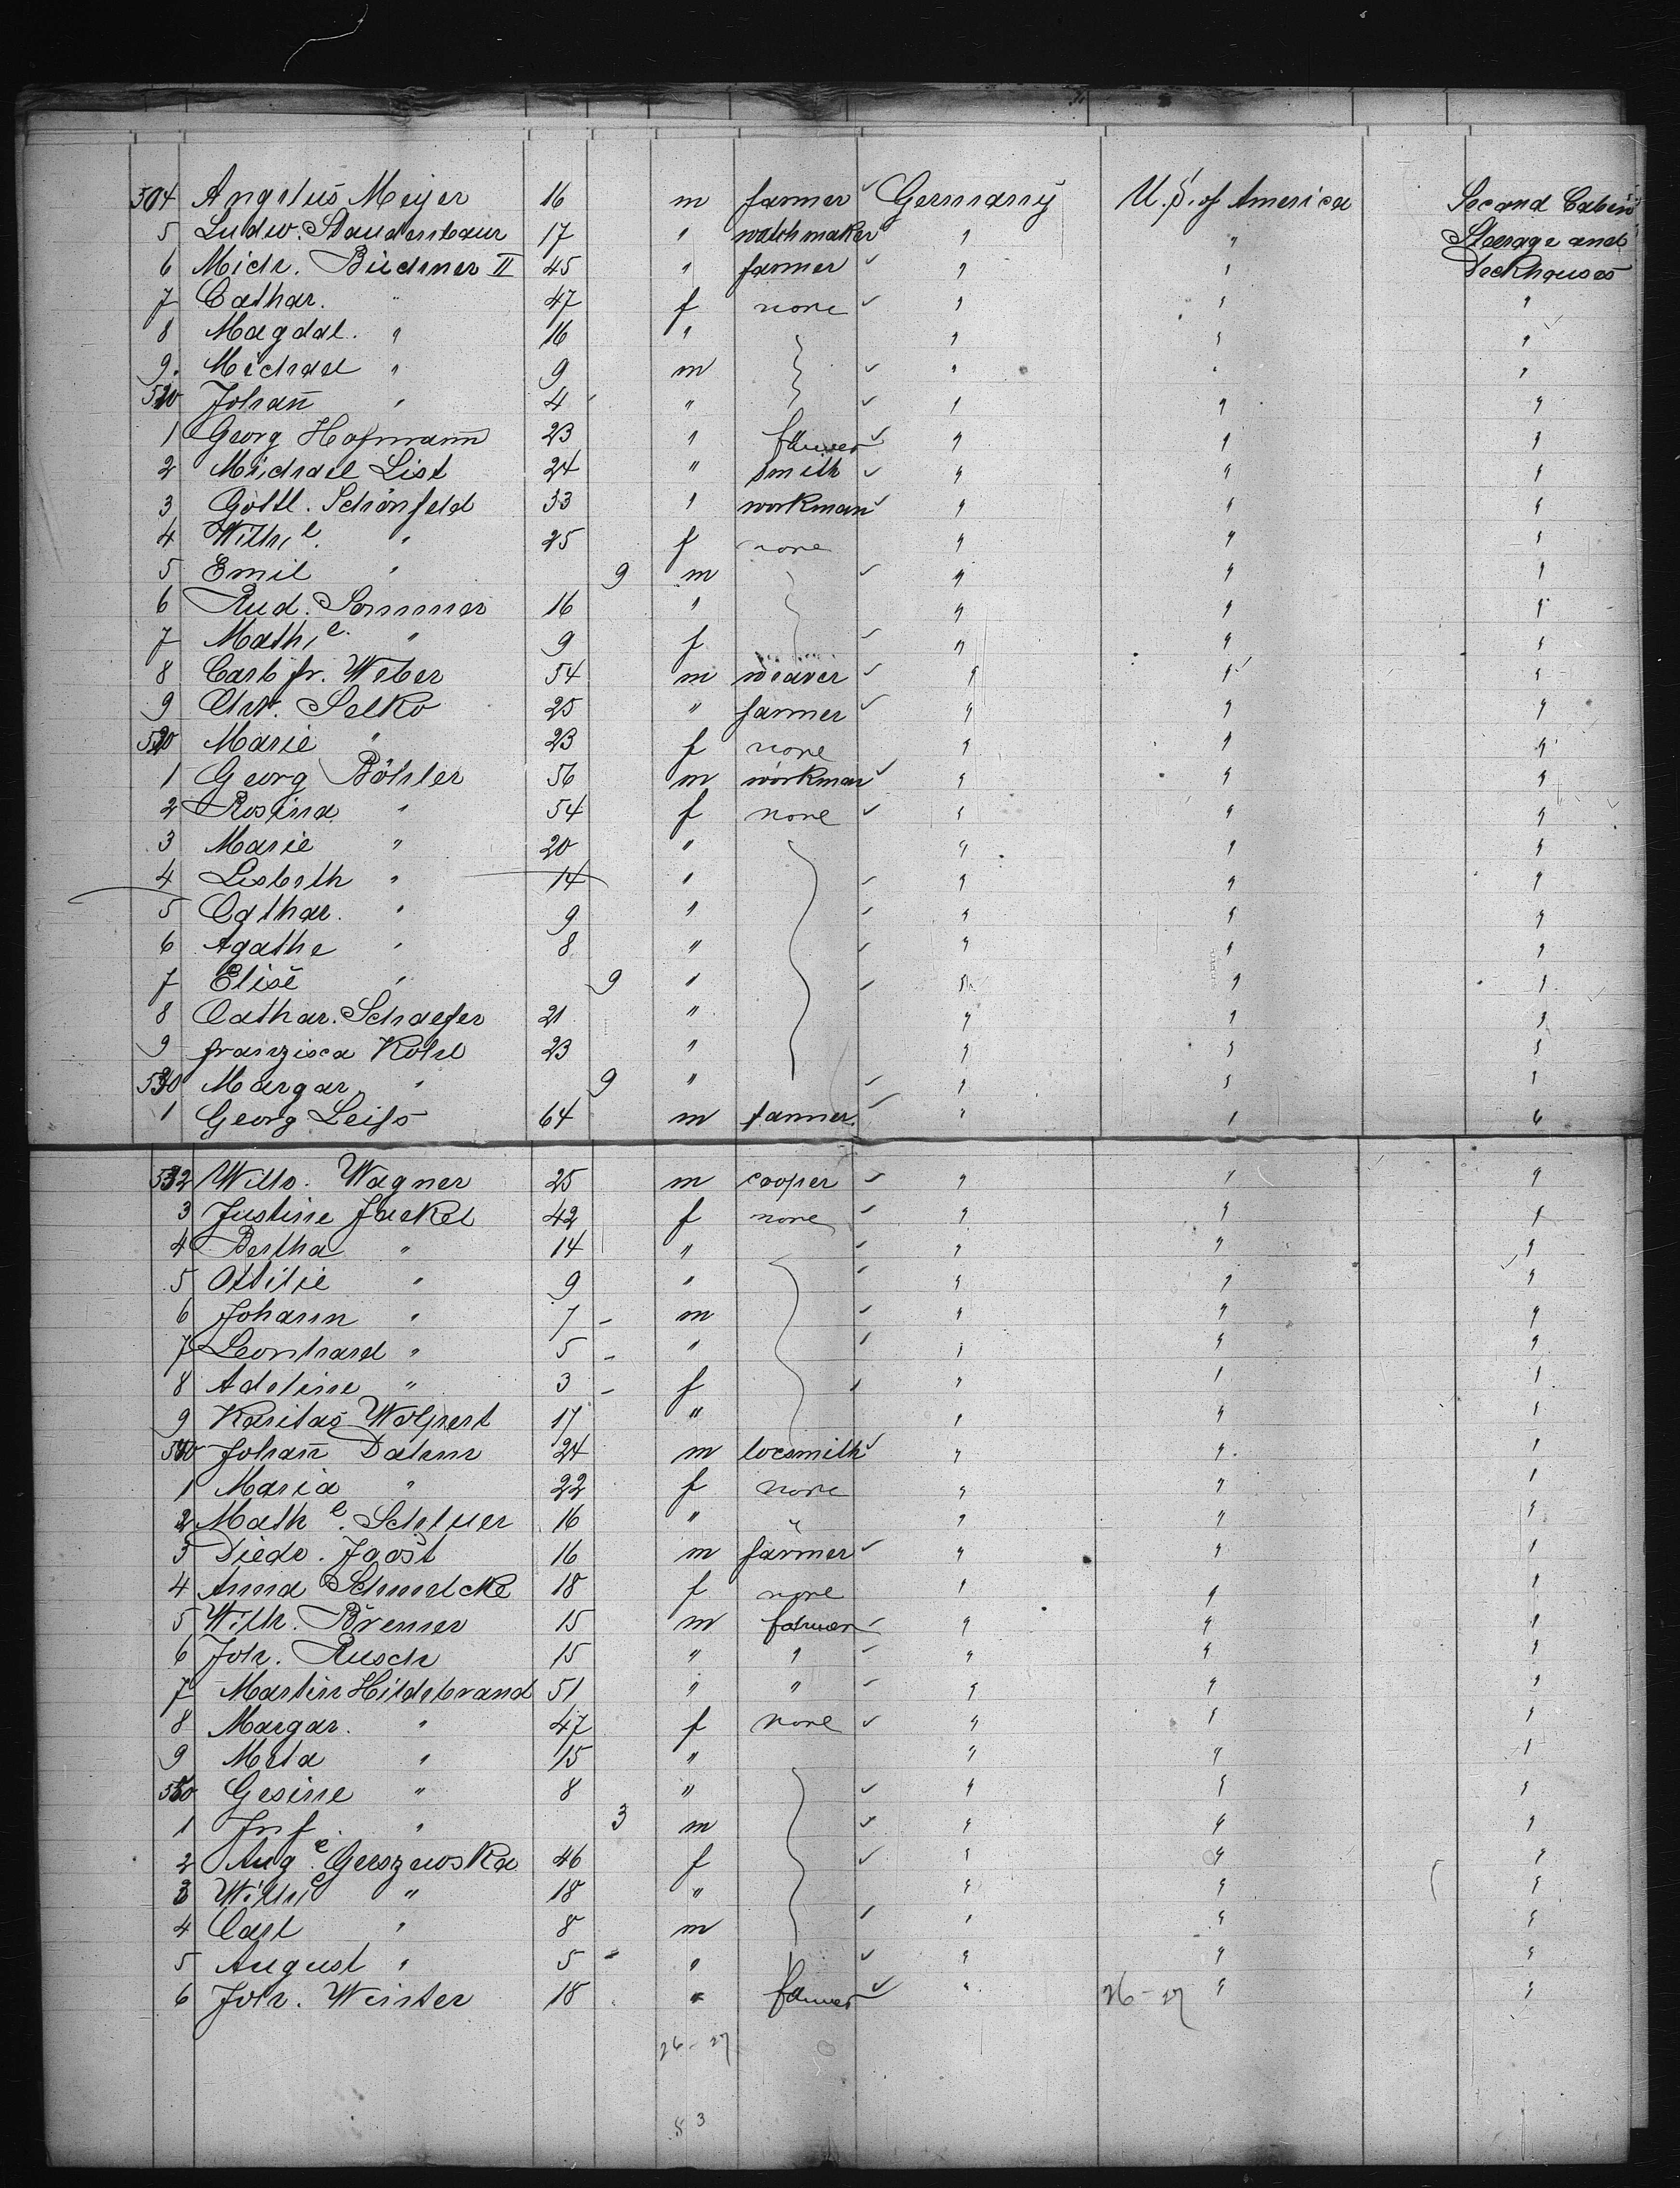 504 Angelus Meyer 16 m farmer Germany U.S. of America Second Cabin
5 Ludw. Staudenbaur 17 " watchmaker " " Steerage and
6 Mich. Büchner II 45 " farmer " " Deckhouses
7 Cathar. " 47 f none " " "
8 Magdal. " 16 " " " "
9. Michael " 9 m " " "
510 Johañ " 4 " " " "
1 Georg Hofmann 23 " farmer " " "
2 Michael List 24 " smith " " "
3 Gottl. Schönfeld 33 " workman " " "
4 Wilhe. " 25 f none " " "
5 Emil " 9 m " " "
6 Rud. Sommer 16 " " " "
7 Mathe. " 9 f " " "
8 Carl fr. Weber 54 m weaver " " "
9 Chr. Selko 25 " farmer " " "
520 Marie " 23 f none " " "
1 Georg Böhler 56 m workman " " "
2 Rosina " 54 f none " " "
3 Marie " 20 " " " "
4 Lisbeth " 14 " " " "
5 Cathar. " 9 " " " "
6 Agathe " 8 " " " "
7 Elise " 9 " " " "
8 Cathar. Schaefer 21 " " " "
9 Franzisca Kohl 23 " " " "
530 Margar. " 9 " " " "
1 Georg Leiss 64 m farmer " " "
532 Wilh. Wagner 25 m cooper " " "
3 Justine Jackel 42 f none " " "
4 Bertha " 14 " " " "
5 Ottilie " 9 " " " "
6 Johann " 7 - m " " "
7 Leonhard " 5 - " " " "
8 Adeline " 3 - f " " "
9 Karitas Wolpert 17 " " " "
540 Johañ Dahm 24 m locsmith " " "
1 Maria " 22 f none " " "
2 Mathe. 16 " " " " "
3 Diedr. Joost 16 m farmer " " "
4 Anna Schmelcke 18 f none " " "
5 Wilh. Bremer 15 m farmer " " "
6 Joh. Rusch 15 " " " " "
7 Martin Hildebrand 51 " " " " "
8 Margar. " 47 f none " " "
9 Meta " 15 " " " "
550 Gesine " 8 " " " "
1 Inf. " 3 m " " "
2 Auge. Gerszewska 46 f " " "
3 Wilhe " 18 " " " "
4 Carl " 8 m " " "
5 August " 5 - " " " "
6 Joh. Winter 18 " farmer " 26-27 " "
26-27
53